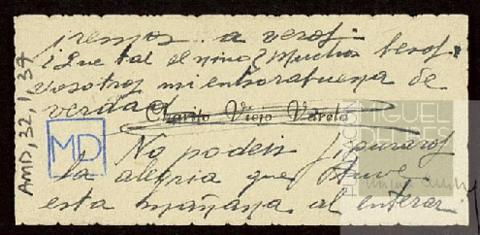 iremos a veros.
¿Que tal el niño? Muchos besos
vosotros mi enhorabuena de
verdad
Charito Viejo Varela
No podeis figuraros
la alegria que tuve
esta mañana al enterar
MD
AMD, 32, 1, 37
MIGUEL
DELIBES